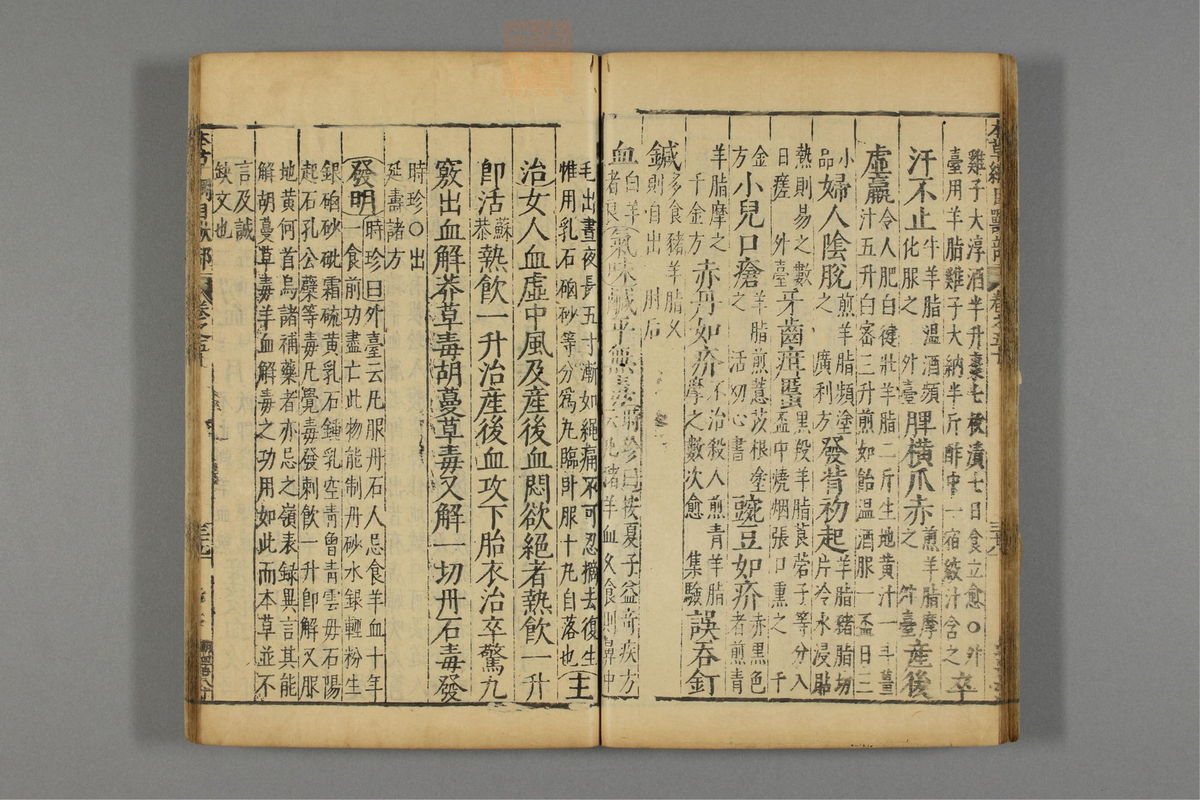 本草綱目獸部 卷之五十
雞子大淳酒半升棗七枚漬七日食立愈○外
臺用羊脂雞子大納半斤酢中一宿絞汁含之卒
汗不止牛羊脂溫酒頻化服之 外臺脾橫爪赤煎羊脂摩之 外臺產後
虛羸令人肥白健壯羊脂二斤生地黃汁一斗薑汁五升白蜜三升煎如飴溫酒服一盃日三
小品婦人陰脫煎羊脂頻塗之 廣利方發背初起羊脂猪脂切片冷水浸貼
熱則易之數日瘥 外臺牙齒疳䘌黑羖羊脂莨菪子等分入盃中燒烟張口熏之 千
金方小兒口瘡羊脂煎薏苡根塗之 活幼心書豌豆如疥赤黑色者煎青
羊脂摩之千金方赤丹如疥不治殺人煎青羊脂摩之數次愈 集驗誤吞釘
鍼多食豬羊脂久則自出 肘后
血白羊者良氣味鹹平無毒時珍曰按夏子益奇疾方云凡猪羊血久食則鼻中
毛出晝夜長五寸漸如繩痛不可忍摘去復生
惟用乳石硇砂等分爲丸臨臥服十丸自落也主
治女人血虛中風及產後血悶欲絕者熱飲一升
卽活蘇恭熱飲一升治產後血攻下胎衣治卒驚九
竅出血解莽草毒胡蔓草毒又解一切丹石毒發
時珍○出延壽諸方
發明時珍曰外臺云凡服丹石人忌食羊血十年
一食前功盡亡此物能制丹砂水銀輕粉生
銀硇砂砒霜硫黃乳石鍾乳空青曾青雲母石陽
起石孔公蘗等毒凡覺毒發刺飲一升卽解又服
地黃何首烏諸補藥者亦忌之嶺表録異言其能
解胡蔓草毒羊血解毒之功用如此而本草並不
言及誠
缺文也
本草綱目獸部 卷之五十